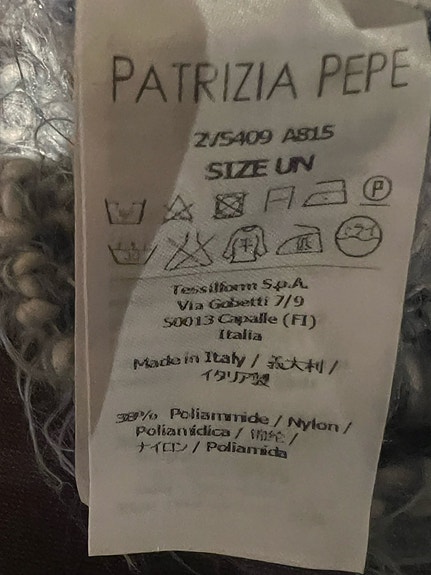 PATRIZIA PEPE
2V5409 A815
SIZE UN
P
Tessilform S.p.A.
Via Gobetti 7/9
50013 Capalle (FI)
Italia
Made in Italy / 義大利 /
イタリア製
38% Poliammide / Nylon /
Poliamidica / /
ナイロン / Poliamida